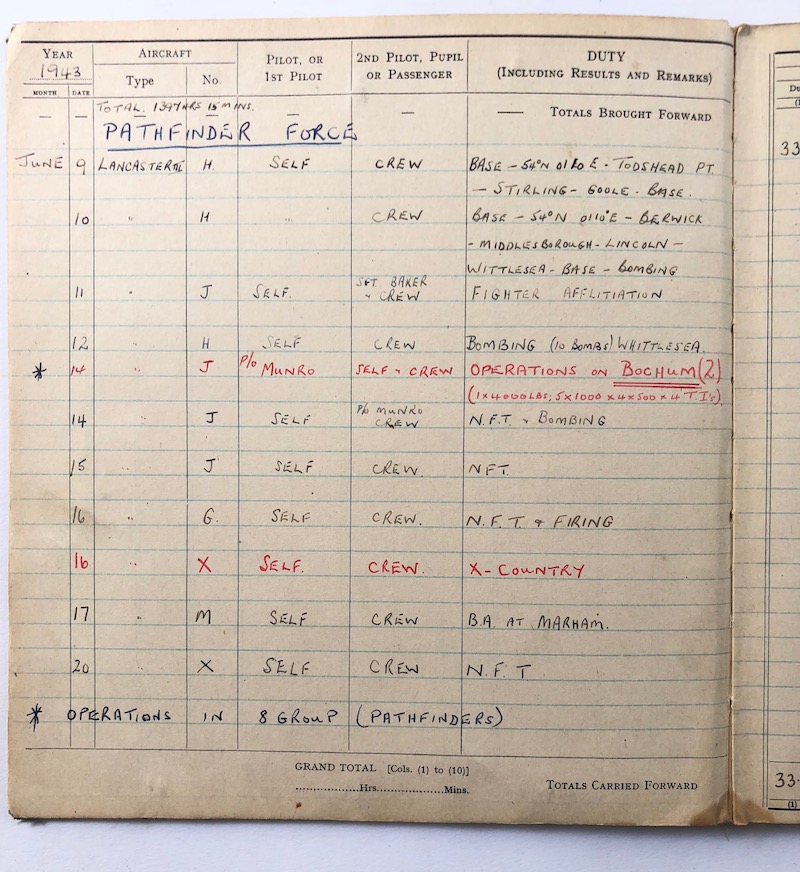 YEAR AIRCRAFT PILOT, OR 2ND PILOT, PUPIL DUTY
1943 1ST PILOT OR PASSENGER (INCLUDING RESULTS AND REMARKS)
MONTH DATE Type No.
TOTAL. 1397 HRS 15 MINS.
— — — — — TOTALS BROUGHT FORWARD
PATHFINDER FORCE
JUNE 9 LANCASTER III H. SELF CREW BASE – 54°N 0110 E · TODSHEAD PT.
– STIRLING – GOOLE · BASE.
10 " H " CREW BASE – 54°N 0110°E – BERWICK
– MIDDLESBOROUGH – LINCOLN –
WITTLESEA – BASE – BOMBING
11 " J SELF. SGT BAKER + CREW FIGHTER AFFLITIATION
12 H SELF CREW BOMBING (10 BOMBS) WHITTLESEA.
* 14 " J P/O MUNRO SELF + CREW OPERATIONS ON BOCHUM (2)
(1 x 4000 LBS; 5 x 1000 x 4 x 500 x 4 T.I's)
14 J SELF P/O MUNRO CREW N.F.T + BOMBING
15 " J SELF CREW. NFT.
16 " G. SELF CREW. N.F.T. + FIRING
16 " X SELF. CREW. X-COUNTRY
17 " M SELF CREW B.A. AT MARHAM.
20 " X SELF CREW N.F.T
* OPERATIONS IN 8 GROUP (PATHFINDERS)
GRAND TOTAL [Cols. (1) to (10)]
..................Hrs...................Mins. TOTALS CARRIED FORWARD
Du
(1
33
33.
(1)